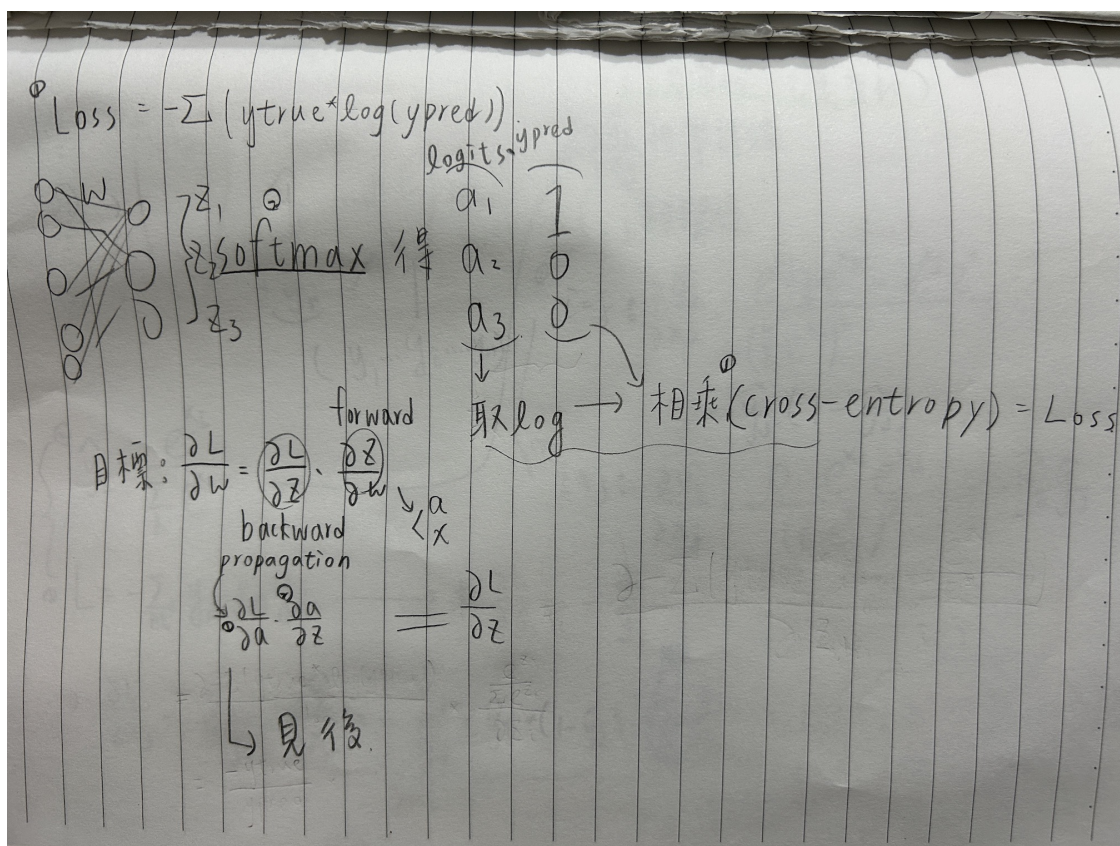 ① Loss = -Σ (ytrue*log(ypred))
logits ypred
w
z₁ a₁ 1
z₂ ② softmax 得 a₂ 0
z₃ a₃ 0
↓
取log → 相乘①(cross-entropy) = Loss
forward
目標: ∂L/∂w = ∂L/∂z · ∂z/∂w
a
x
backward
propagation
①∂L/∂a · ②∂a/∂z = ∂L/∂z
↳ 見後.